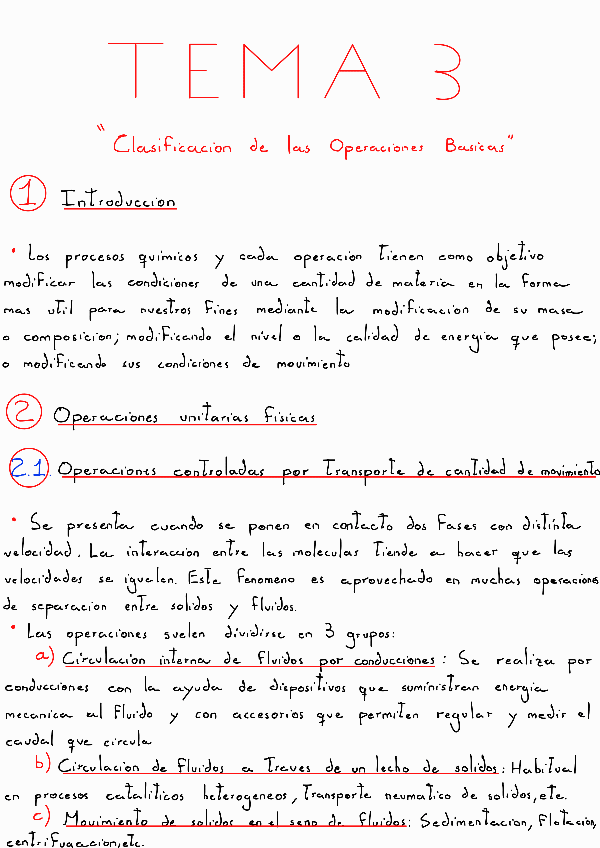 TEMA 3
"Clasificacion de las Operaciones Basicas"
1 Introduccion
• Los procesos químicos y cada operacion tienen como objetivo
modificar las condiciones de una cantidad de materia en la forma
mas util para nuestros fines mediante la modificacion de su masa
o composicion; modificando el nivel o la calidad de energia que posee;
o modificando sus condiciones de movimiento
2 Operaciones unitarias fisicas
2.1. Operaciones controladas por transporte de cantidad de movimiento
• Se presenta cuando se ponen en contacto dos fases con distinta
velocidad. La interaccion entre las moleculas tiende a hacer que las
velocidades se igualen. Este fenomeno es aprovechado en muchas operaciones
de separacion entre solidos y fluidos.
• Las operaciones suelen dividirse en 3 grupos:
a) Circulacion interna de fluidos por conducciones: Se realiza por
conducciones con la ayuda de dispositivos que suministran energia
mecanica al fluido y con accesorios que permiten regular y medir el
caudal que circula
b) Circulacion de fluidos a traves de un lecho de solidos: Habitual
en procesos cataliticos heterogeneos, transporte neumatico de solidos, etc.
c) Movimiento de solidos en el seno de fluidos: Sedimentacion, Flotacion,
centrifugacion, etc.